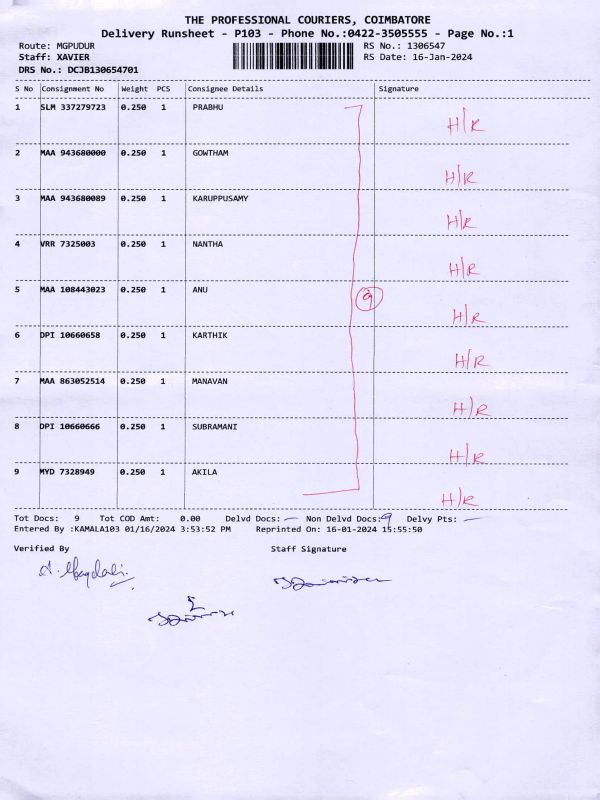 THE PROFESSIONAL COURIERS, COIMBATORE
Delivery Runsheet - P103 - Phone No.:0422-3505555 - Page No.:1
Route: MGPUDUR RS No.: 1306547
Staff: XAVIER RS Date: 16-Jan-2024
DRS No.: DCJB130654701
S No Consignment No Weight PCS Consignee Details Signature
1 SLM 337279723 0.250 1 PRABHU H/R
2 MAA 943680000 0.250 1 GOWTHAM H/R
3 MAA 943680089 0.250 1 KARUPPUSAMY H/R
4 VRR 7325003 0.250 1 NANTHA H/R
5 MAA 108443023 0.250 1 ANU 9 H/R
6 DPI 10660658 0.250 1 KARTHIK H/R
7 MAA 863052514 0.250 1 MANAVAN H/R
8 DPI 10660666 0.250 1 SUBRAMANI H/R
9 MYD 7328949 0.250 1 AKILA H/R
Tot Docs: 9 Tot COD Amt: 0.00 Delvd Docs: — Non Delvd Docs: 9 Delvy Pts: —
Entered By :KAMALA103 01/16/2024 3:53:52 PM Reprinted On: 16-01-2024 15:55:50
Verified By Staff Signature